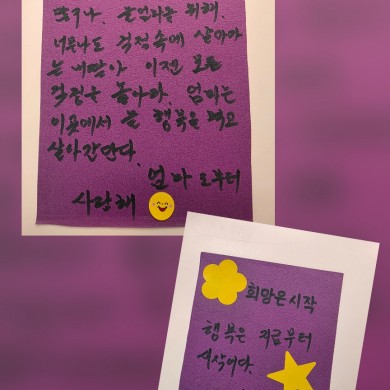 늘엄마를 위해.
너무나도 걱정속에 살아가
는 내딸아 이젠 모든
걱정은 놓아라. 엄마는
이곳에서 늘 행복을 먹고
살아간단다.
엄마로부터
사랑해
희망은 시작
행복은 지금부터
시작이다.